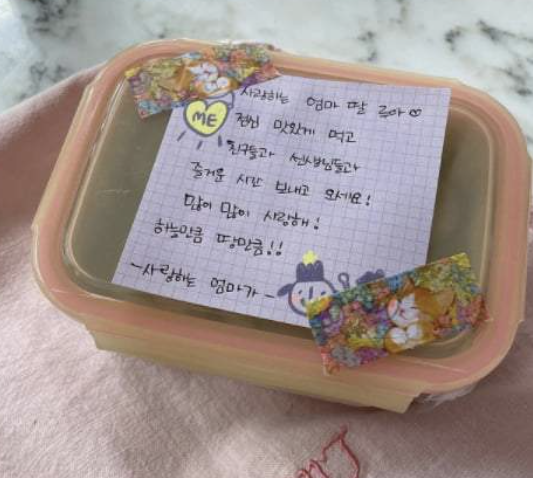 ME
사랑하는 엄마 딸 루아♡
점심 맛있게 먹고
친구들과 선생님들과
즐거운 시간 보내고 오세요!
많이 많이 사랑해!
하늘만큼 땅만큼!!
-사랑하는 엄마가-